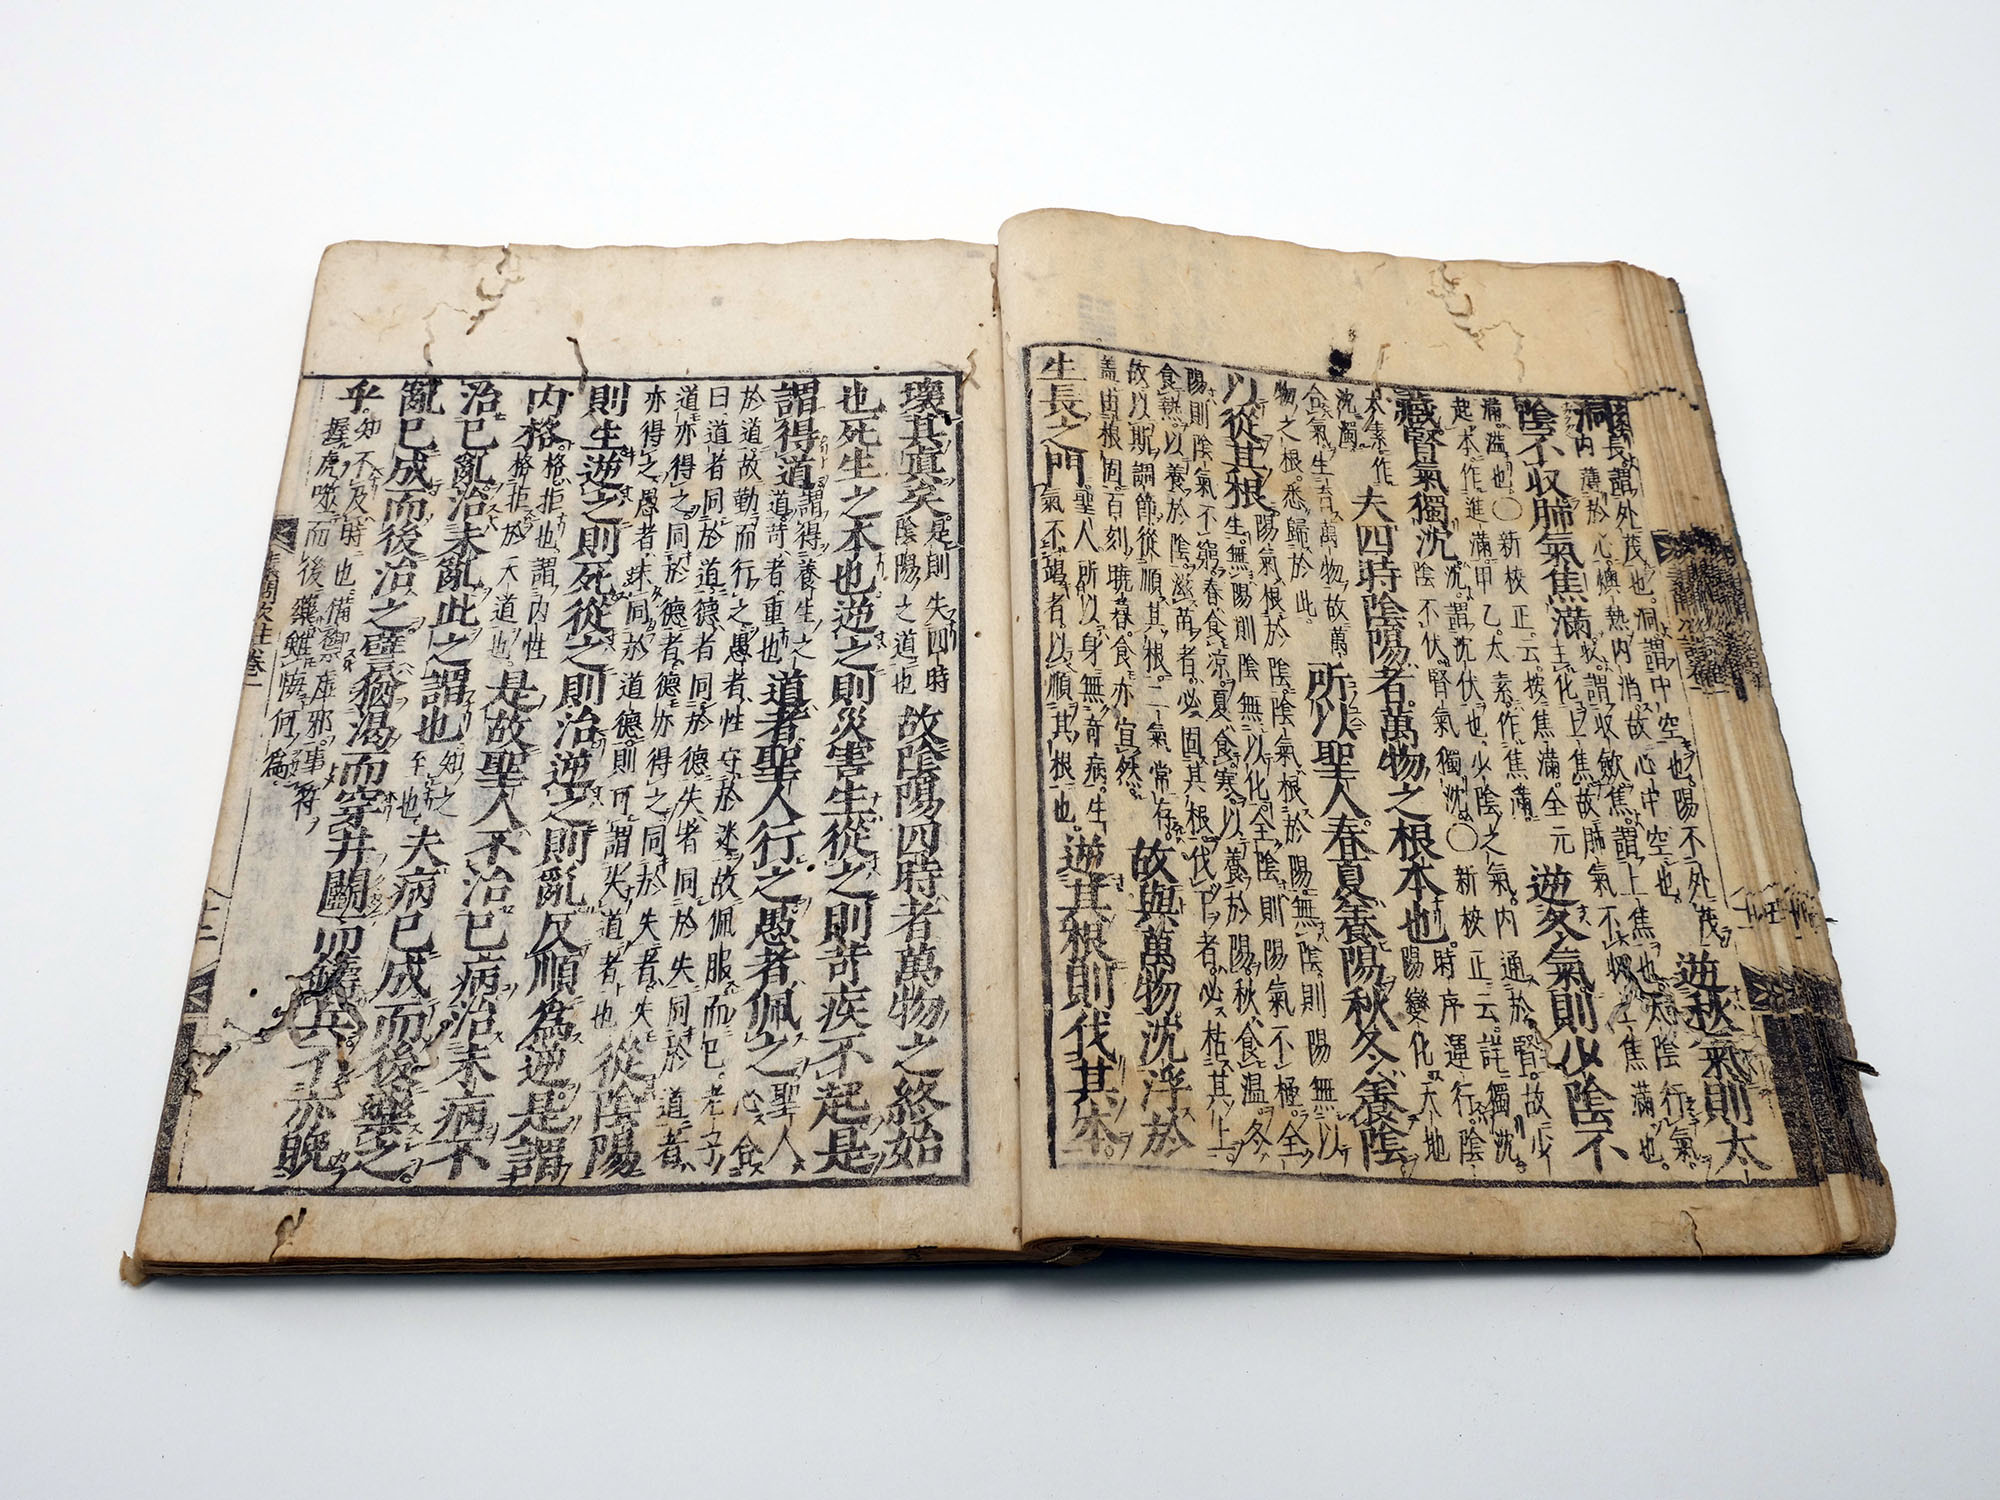 洞
長謂外茂也。洞謂中空也。陽不外茂
内薄於心。燠熱内消。故心中空也。
逆秋氣則太
陰不收肺氣焦滿
收謂收斂。焦謂上焦也。太陰行氣
主化上焦。故肺氣不收上焦滿也。
滿溢也。○新校正云。按焦滿。全元
起本作進滿。甲乙太素作焦滿。
逆冬氣則少陰不
藏腎氣獨沈
沈謂沈伏也。少陰之氣。内通於腎。故少
陰不伏。腎氣獨沈。○新校正云。詳獨沈。
太素作
沈濁。
夫四時陰陽者。萬物之根本也
時序運行。陰
陽變化。天地
合氣。生育萬物。故萬
物之根。悉歸於此。
所以聖人春夏養陽。秋冬養陰
以從其根
陽氣根於陰。陰氣根於陽。無陰則陽無以
生。無陽則陰無以化。全陰則陽氣不極。全
陽則陰氣不窮。春食凉。夏食寒。以養於陽。秋食温。冬
食熱。以養於陰。滋苗者。必固其根。伐下者。必枯其上。
故以斯調節。從順其根。二氣常存。
蓋由根固。百刻曉暮。食亦宜然。
故與萬物沈浮於
生長之門
聖人所以身無奇病。生
氣不竭者。以順其根也。
逆其根則伐其本。
壞其眞矣
是則失四時
陰陽之道也
故陰陽四時者萬物之終始
也死生之本也逆之則災害生從之則苛疾不起是
謂得道
謂得養生之
道。苛者重也
道者聖人行之愚者佩之
聖人心合
於道。故勤而行之。愚者性守於迷。故佩服而已。老子
曰。道者同於道。德者同於德。失者同於失。同於道者。
道亦得之。同於德者。德亦得之。同於失者。失
亦得之。愚者未同於道德。則可謂失道者也
從陰陽
則生逆之則死從之則治逆之則亂反順爲逆是謂
内格。
格拒也。謂内性
格拒於天道也。
是故聖人不治已病治未病不
治已亂治未亂此之謂也
知之
至也
夫病已成而後藥之。
亂已成而後治之譬猶渴而穿井鬬而鑄兵。不亦晩
乎。
知不及時也。備禦虛邪。事符
握虎噬而後藥。雖悔何爲。
素問次註卷一